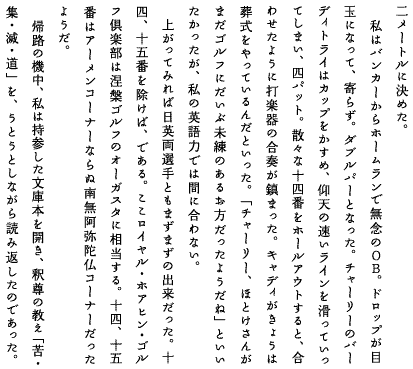 二メートルに決めた。
　私はバンカーからホームランで無念のＯＢ。ドロップが目
玉になって、寄らず。ダブルパーとなった。チャーリーのバー
ディトライはカップをかすめ、仰天の速いラインを滑っていっ
てしまい、四パット。散々な十四番をホールアウトすると、合
わせたように打楽器の合奏が鎮まった。キャディがきょうは
葬式をやっているんだといった。「チャーリー、ほとけさんが
まだゴルフにだいぶ未練のあるお方だったようだね」といい
たかったが、私の英語力では間に合わない。
　上がってみれば日英両選手ともまずまずの出来だった。十
四、十五番を除けば、である。ここロイヤル・ホアヒン・ゴル
フ倶楽部は涅槃ゴルフのオーガスタに相当する。十四、十五
番はアーメンコーナーならぬ南無阿弥陀仏コーナーだった
ようだ。
　帰路の機中、私は持参した文庫本を開き、釈尊の教え「苦・
集・滅・道」を、うとうとしながら読み返したのであった。